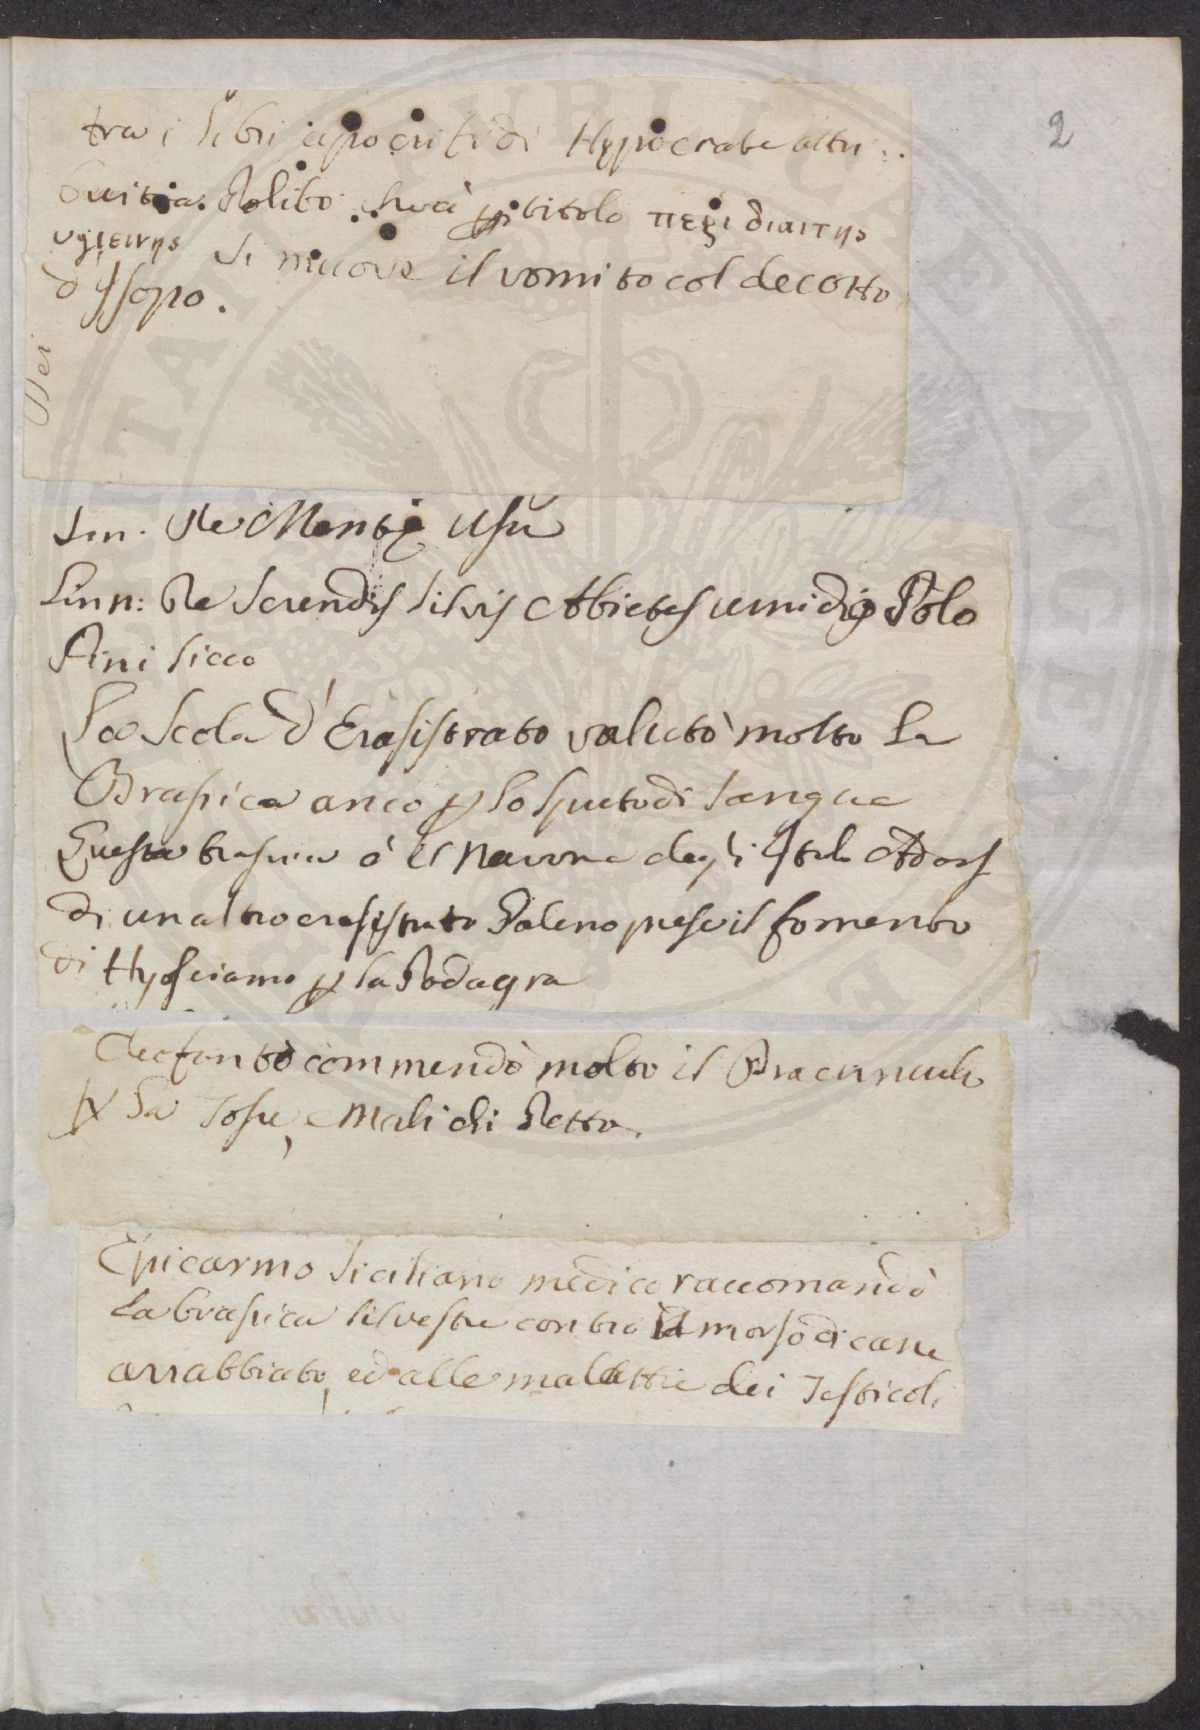 2
tra i libri apocrifi di Hypocrate attri..
buiti a Polibo che à per titolo περι διαιτης
υγιεινης si muove il vomito col decotto
d'Issopo.
Dei
Lin. De Menthę Usu
Linn: De serendis silvis Abietes umido Polo
Pini sicco
La Scola d'Erasistrato valutò molto la
Brassica anco per lo sputo di sangue
Questa brassica è il degli
di un altro erasistrato Galeno prese il fomento
di Hyosciamo per la Podagra
Cleofanto commendò molto il
per la Tosse, e Mali di Petto.
Epicarmo Siciliano medico raccomandò
la brassica silvestre contro il morso di cane
arrabbiato, ed alle malattie dei Testicoli